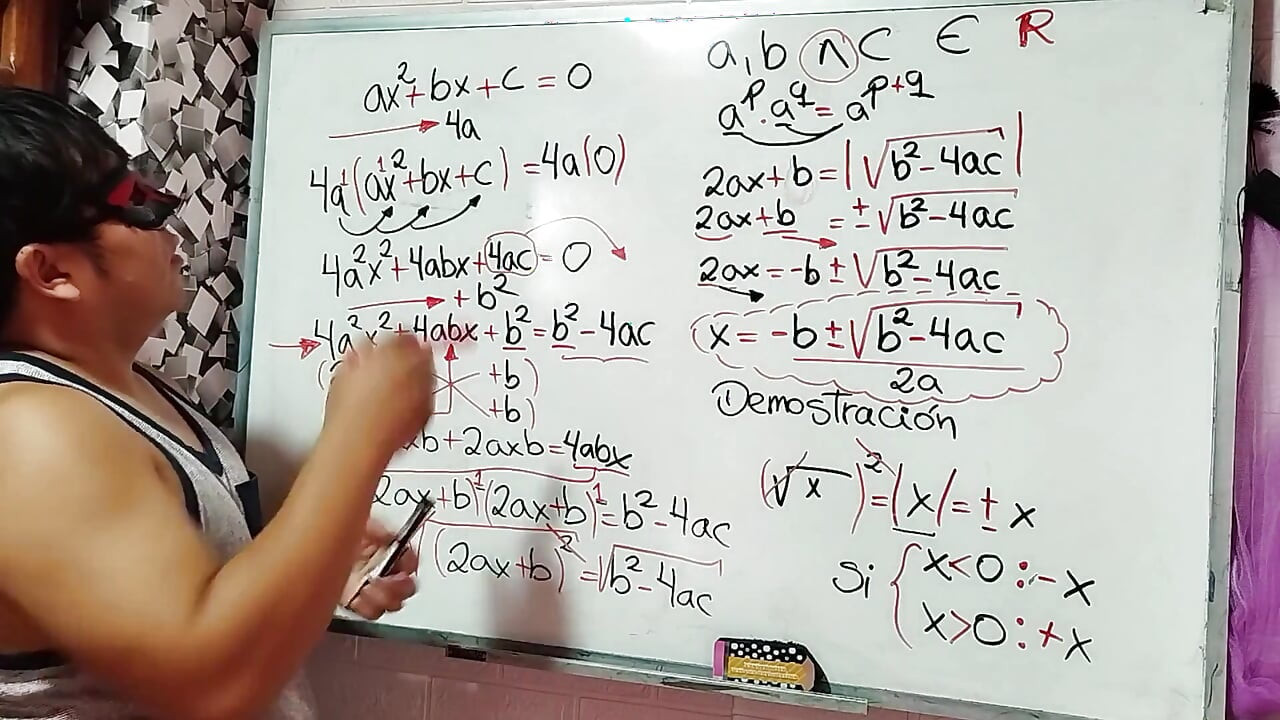 ax²+bx+c=0
4a
4a¹(a¹x²+bx+c)=4a(0)
4a²x²+4abx+4ac=0
+b²
4a²x²+4abx+b²=b²-4ac
+b)
+b)
xb+2axb=4abx
2ax+b)¹(2ax+b)¹=b²-4ac
√(2ax+b)²=√b²-4ac
a,b ∧ C ∈ R
aᵖ·a^q=a^p+q
2ax+b=|√b²-4ac|
2ax+b=±√b²-4ac
2ax=-b±√b²-4ac
x=-b±√b²-4ac
2a
Demostración
(√x)²=|x|=±x
Si { x<0:-x
x>0:+x